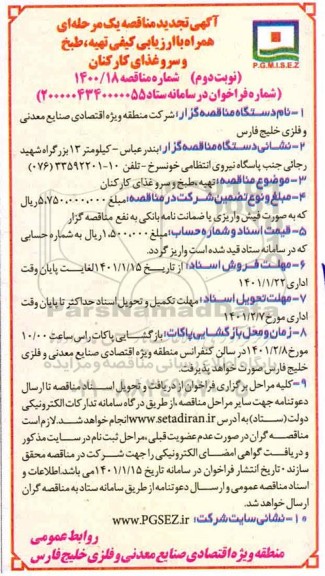 آگهی تجدید مناقصه یک مرحله‌ای
همراه با ارزیابی کیفی تهیه، طبخ
و سرو غذای کارکنان
P.G.M.I.S.E.Z
(نوبت دوم) شماره مناقصه ۱۴۰۰/۱۸
(شماره فراخوان در سامانه ستاد ۲۰۰۰۰۰۴۳۴۰۰۰۰۰۵۵)
۱- نام دستگاه مناقصه گزار: شرکت منطقه ویژه اقتصادی صنایع معدنی
و فلزی خلیج فارس
۲- نشانی دستگاه مناقصه گزار: بندرعباس - کیلومتر ۱۳ بزرگراه شهید
رجائی جنب پاسگاه نیروی انتظامی خونسرخ - تلفن ۱۰-۳۳۵۹۲۲۰۱ (۰۷۶)
۳- موضوع مناقصه: تهیه، طبخ و سرو غذای کارکنان
۴- مبلغ و نوع تضمین شرکت در مناقصه: مبلغ ۵,۷۵۰,۰۰۰,۰۰۰ ریال
که به صورت فیش واریزی یا ضمانت نامه بانکی به نفع مناقصه گزار
۵- قیمت اسناد و شماره حساب: مبلغ ۱,۵۰۰,۰۰۰ ریال به شماره حسابی
که در سامانه ستاد قید شده است واریز گردد.
۶- مهلت فروش اسناد: از تاریخ ۱۴۰۱/۱/۱۵ لغایت پایان وقت
اداری ۱۴۰۱/۱/۲۲
۷- مهلت تحویل اسناد: مهلت تکمیل و تحویل اسناد حداکثر تا پایان وقت
اداری مورخ ۱۴۰۱/۲/۷
۸- زمان و محل بازگشایی پاکات: بازگشایی پاکات راس ساعت ۱۰/۰۰
مورخ ۱۴۰۱/۲/۸ در سالن کنفرانس منطقه ویژه اقتصادی صنایع معدنی و فلزی
خلیج فارس صورت خواهد پذیرفت.
۹- کلیه مراحل برگزاری فراخوان از دریافت و تحویل اسناد مناقصه تا ارسال
دعوتنامه جهت سایر مراحل مناقصه، از طریق درگاه سامانه تدارکات الکترونیکی
دولت (ستاد) به آدرس www.setadiran.ir انجام خواهد شد. لازم است
مناقصه گران در صورت عدم عضویت قبلی، مراحل ثبت نام در سایت مذکور
و دریافت گواهی امضای الکترونیکی را جهت شرکت در مناقصه محقق
سازند، تاریخ انتشار فراخوان در سامانه تاریخ ۱۴۰۱/۱/۱۵ می باشد. اطلاعات و
اسناد مناقصه عمومی و ارسال دعوتنامه از طریق سامانه ستاد به مناقصه گران
ارسال خواهد شد.
۱۰- نشانی سایت شرکت: www.PGSEZ.ir
روابط عمومی
منطقه ویژه اقتصادی صنایع معدنی و فلزی خلیج فارس